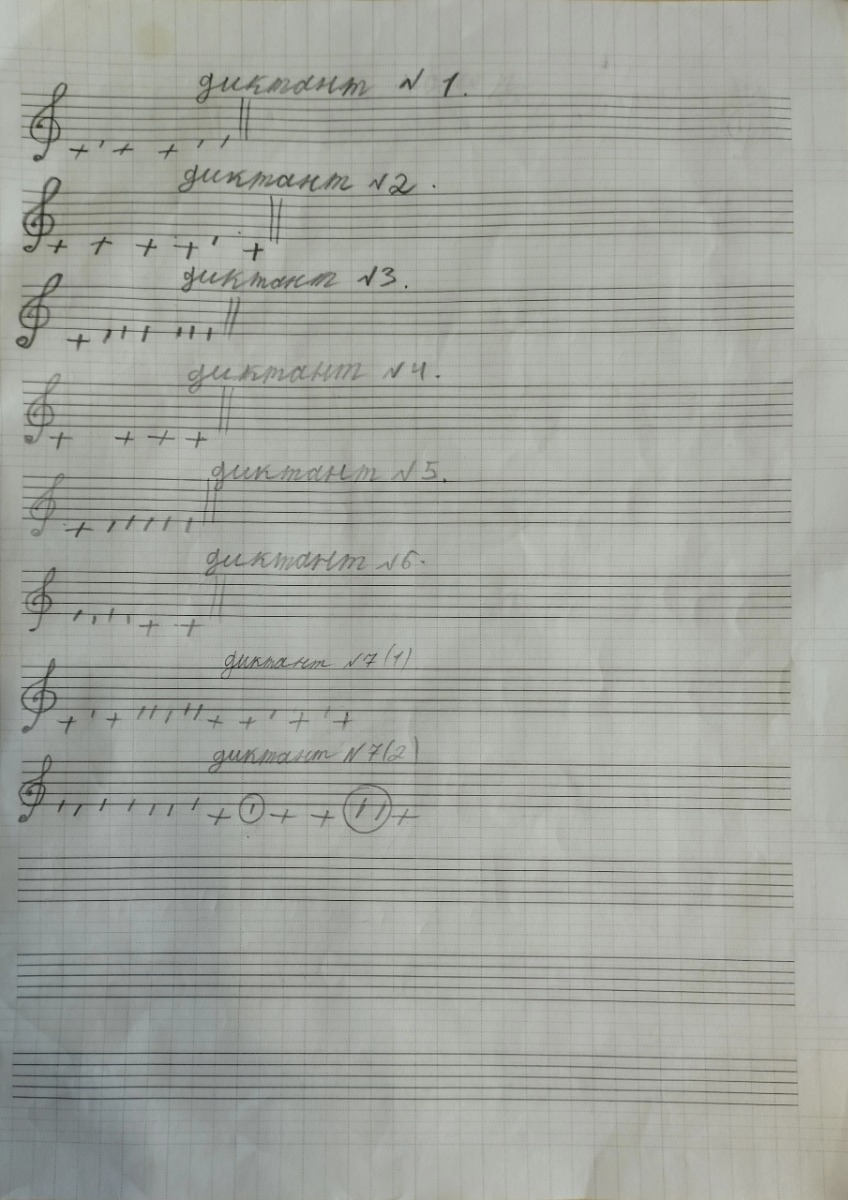 диктант №1.
диктант №2.
диктант №3.
диктант №4.
диктант №5.
диктант №6.
диктант №7(1)
диктант №7(2)